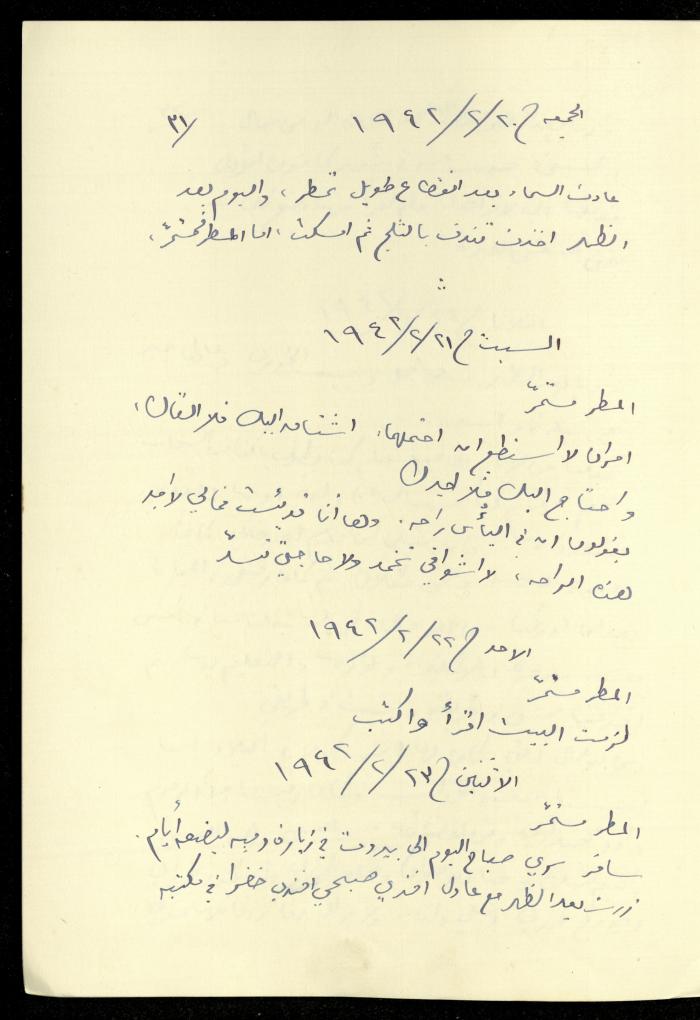 الجمعه في ٢٠/٢/١٩٤٢ ٣١/
عادت السماء بعد انقطاع طويل تمطر، واليوم بعد
الظهر اخذت تندف بالثلج ثم امسكت، اما المطر فمستمرّ،
السبت في ٢١/٢/١٩٤٢
المطر مستمرّ
امران لا استطيع ان احتملهما، اشتاق اليك فلا القاك،
واحتاج اليك فلا اجدك
يقولون ان في اليأس راحه. وها أنا قد يئست فمالي لا اجد
هذه الراحه، لا اشواقي تخمد ولا حاجتي تنسدّ
الاحد في ٢٢/٢/١٩٤٢
المطر مستمرّ
لزمت البيت اقرأ واكتب
الاثنين في ٢٣/٢/١٩٤٢
المطر مستمرّ
سافر سري صباح اليوم الى بيروت في زيارة وميه لبضعه أيام.
زرت بعد الظهر مع عادل افندي صبحي افندي خضرا في مكتبه